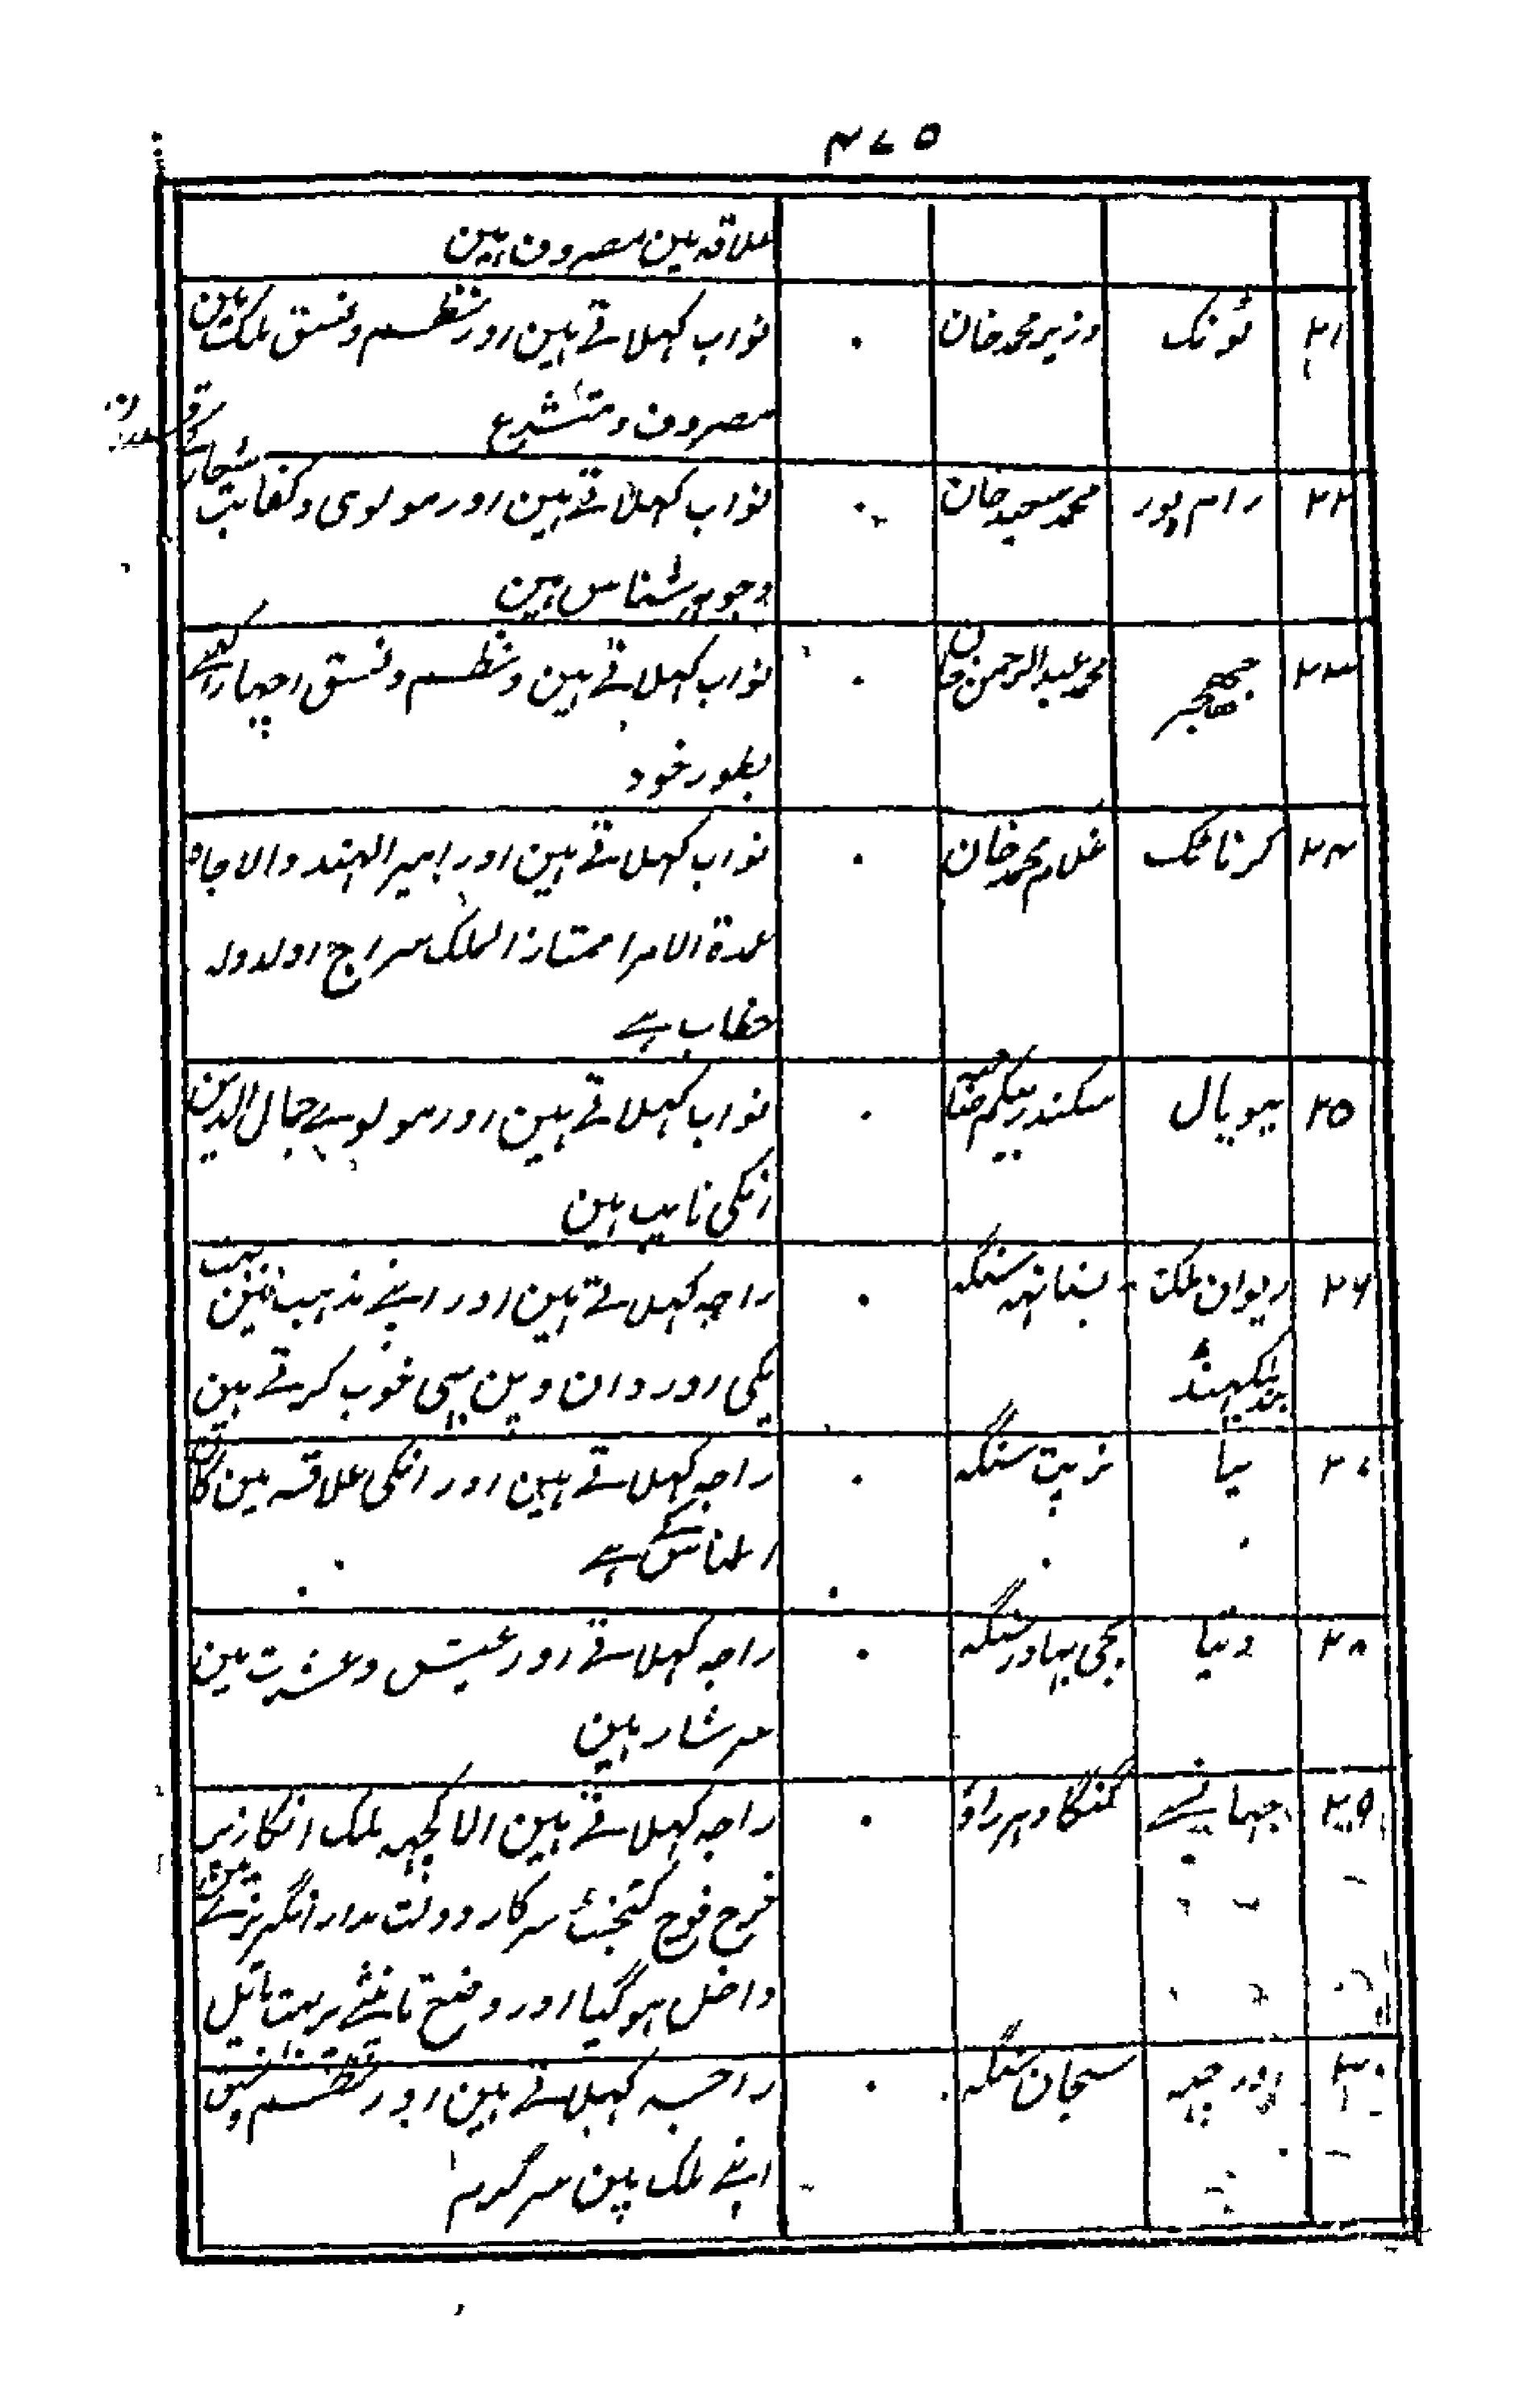 ۴۷۵
علاقہ مین مصروف ہین
۲۱ ٹونک وزیر محمد خان ۰ نواب کہلاتے ہین اور نظم ونسق ملک مین
مصروف ومتشرع
۲۲ رام پور محمد سعید خان ۰ نواب کہلاتے ہین اور مولوی وکفایت شعار
وجوہر شناس ہین
۲۳ جھجر محمد عبدالرحمن خان ۰ نواب کہلاتے ہین ونظم ونسق اچھا
بطور خود
۲۴ کرناٹک غلام محمد خان ۰ نواب کہلاتے ہین اور امیر الہند والا جاہ
عمدۃ الامرا ممتاز الملک سراج اولدولہ
خطاب ہے
۲۵ بہوپال سکندر بیگم صاحبہ ۰ نواب کہلاتے ہین اور مولوے جمال الدین
انکی نایب ہین
۲۶ ریوان ملک سنگہ ۰ راجہ کہلاتے ہین اور اپنے مذہب مین بہت
پکی اور دان وپن بہی خوب کرتے ہین
بندیلکہنڈ
۲۷ پنا نرپت سنگہ ۰ راجہ کہلاتے ہین اور انکی علاقہ مین کان
الماس کے ہے
۲۸ دتیا بجی بہادر سنگہ ۰ راجہ کہلاتے اور عیش وعشرت مین
سرشار ہین
۲۹ جہانسے گنگا دہر راؤ ۰ راجہ کہلاتے ہین الا کچہہ ملک انکا
خرچ فوج کنتجنٹ سرکار دولت مدار انگریزے مین
داخل ہوگیا اور وضع
۳۰ اورچہہ سجان سنگہ ۰ راجہ کہلاتے ہین اور نظم ونسق
اپنے ملک مین سرگرم